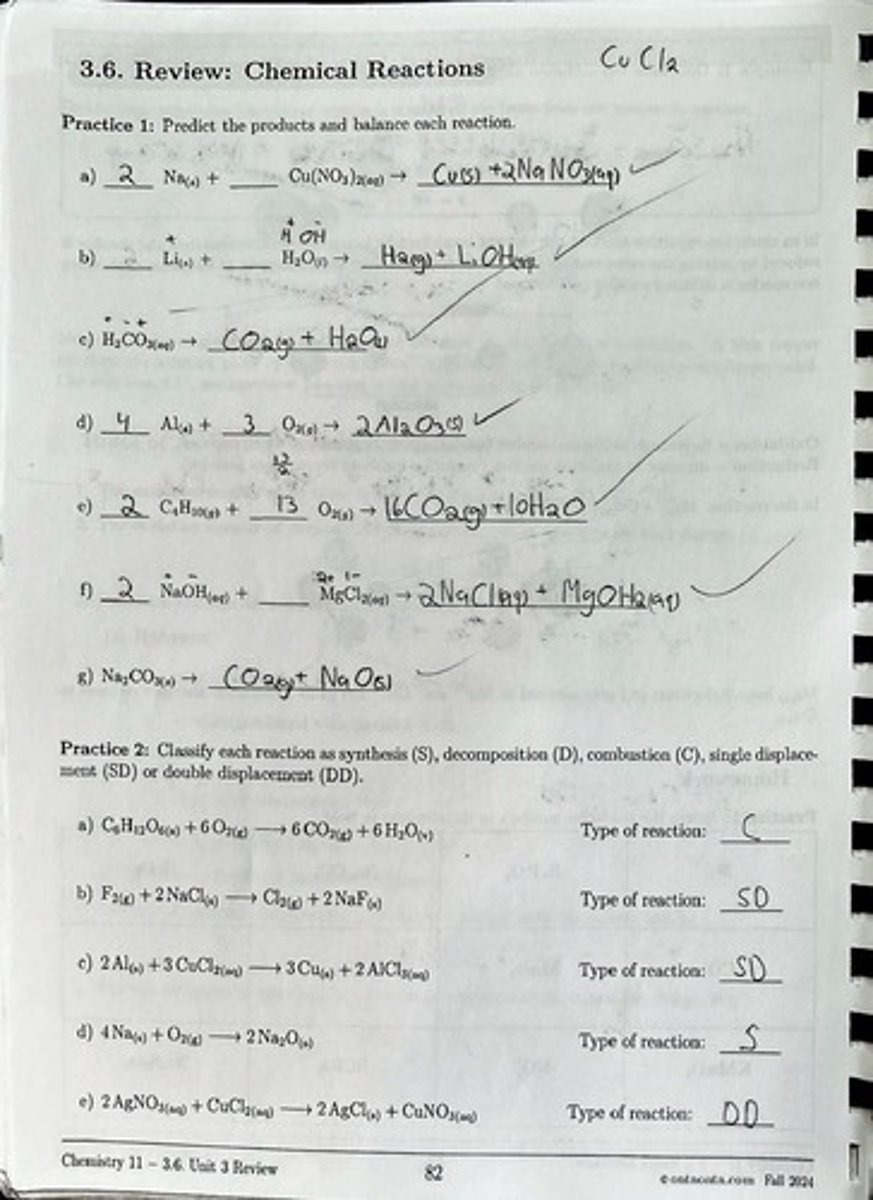 3.6. Review: Chemical Reactions CuCl2
Practice 1: Predict the products and balance each reaction.
a) 2 Na(s) + Cu(NO3)2(aq) → Cu(s) + 2NaNO3(aq)
+ H+ OH-
b) Li(s) + H2O(l) → H2(g) + LiOH(aq)
c) H2CO3(aq) → CO2(g) + H2O(l)
d) 4 Al(s) + 3 O2(g) → 2Al2O3(s)
e) 2 C4H10(g) + 13 O2(g) → 16CO2(g) + 10H2O
f) 2 NaOH(aq) + MgCl2(aq) → 2NaCl(aq) + MgOH2(aq)
g) Na2CO3(s) → CO2(g) + NaO(s)
Practice 2: Classify each reaction as synthesis (S), decomposition (D), combustion (C), single displace-
ment (SD) or double displacement (DD).
a) C6H12O6(s) + 6 O2(g) ⟶ 6 CO2(g) + 6 H2O(s) Type of reaction: C
b) F2(g) + 2 NaCl(s) ⟶ Cl2(g) + 2 NaF(s) Type of reaction: SD
c) 2 Al(s) + 3 CuCl2(aq) ⟶ 3 Cu(s) + 2 AlCl3(aq) Type of reaction: SD
d) 4 Na(s) + O2(g) ⟶ 2 Na2O(s) Type of reaction: S
e) 2 AgNO3(aq) + CuCl2(aq) ⟶ 2 AgCl(s) + CuNO3(aq) Type of reaction: DD
Chemistry 11 – 3.6. Unit 3 Review 82 Fall 2024